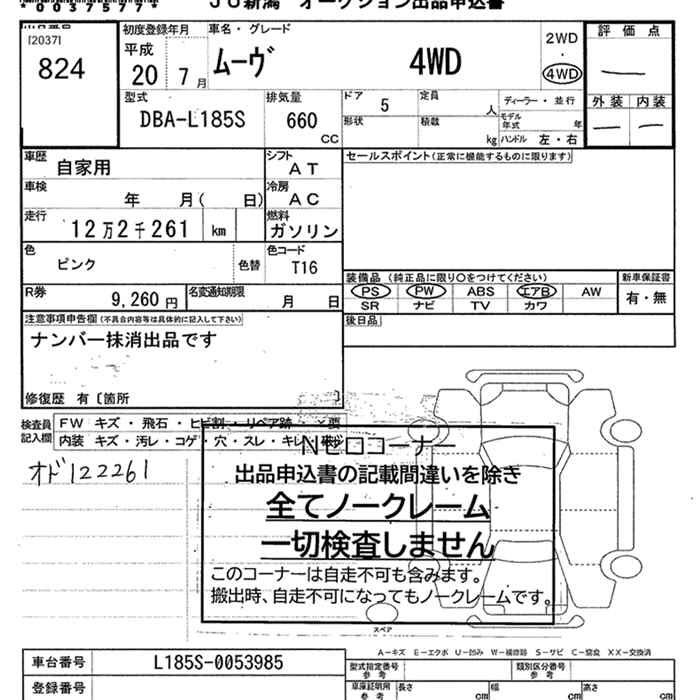 *0037577*
JU新潟 オークション出品申込書
[2037]
824
初度登録年月
平成
20 年 7 月
車名・グレード
ムーヴ 4WD
2WD
・
4WD
評価点
―
外装 内装
― ―
型式
DBA-L185S
排気量
660
CC
ドア 5
形状
定員 人
積載 kg
ディーラー・並行
モデル年式 年
ハンドル 左・右
車歴
自家用
シフト
AT
車検
年 月( 日)
冷房
AC
走行
12万2千261 km
燃料
ガソリン
色
ピンク
色替
色コード
T16
R券
9,260 円
名変通知期限
月 日
セールスポイント(正常に機能するものに限ります)
装備品 (純正品に限り○をつけてください)
PS PW ABS エアB AW
SR ナビ TV カワ
新車保証書
有・無
後日品
注意事項申告欄(不具合内容等は具体的に記入して下さい)
ナンバー抹消出品です
修復歴 有〔箇所 〕
検査員
記入欄
FW キズ・飛石・ヒビ割・リペア跡・×要
内装 キズ・汚レ・コゲ・穴・スレ・キレ
オド122261
Nゼロコーナー
出品申込書の記載間違いを除き
全てノークレーム
一切検査しません
このコーナーは自走不可も含みます。
搬出時、自走不可になってもノークレームです。
スペア
A-キズ E-エクボ U-凹み W-補修跡 S-サビ C-腐食 XX-交換済
車台番号 L185S-0053985
登録番号
型式指定番号
参考
類別区分番号
参考
車庫証明用
参考
長さ cm
幅 cm
高さ cm